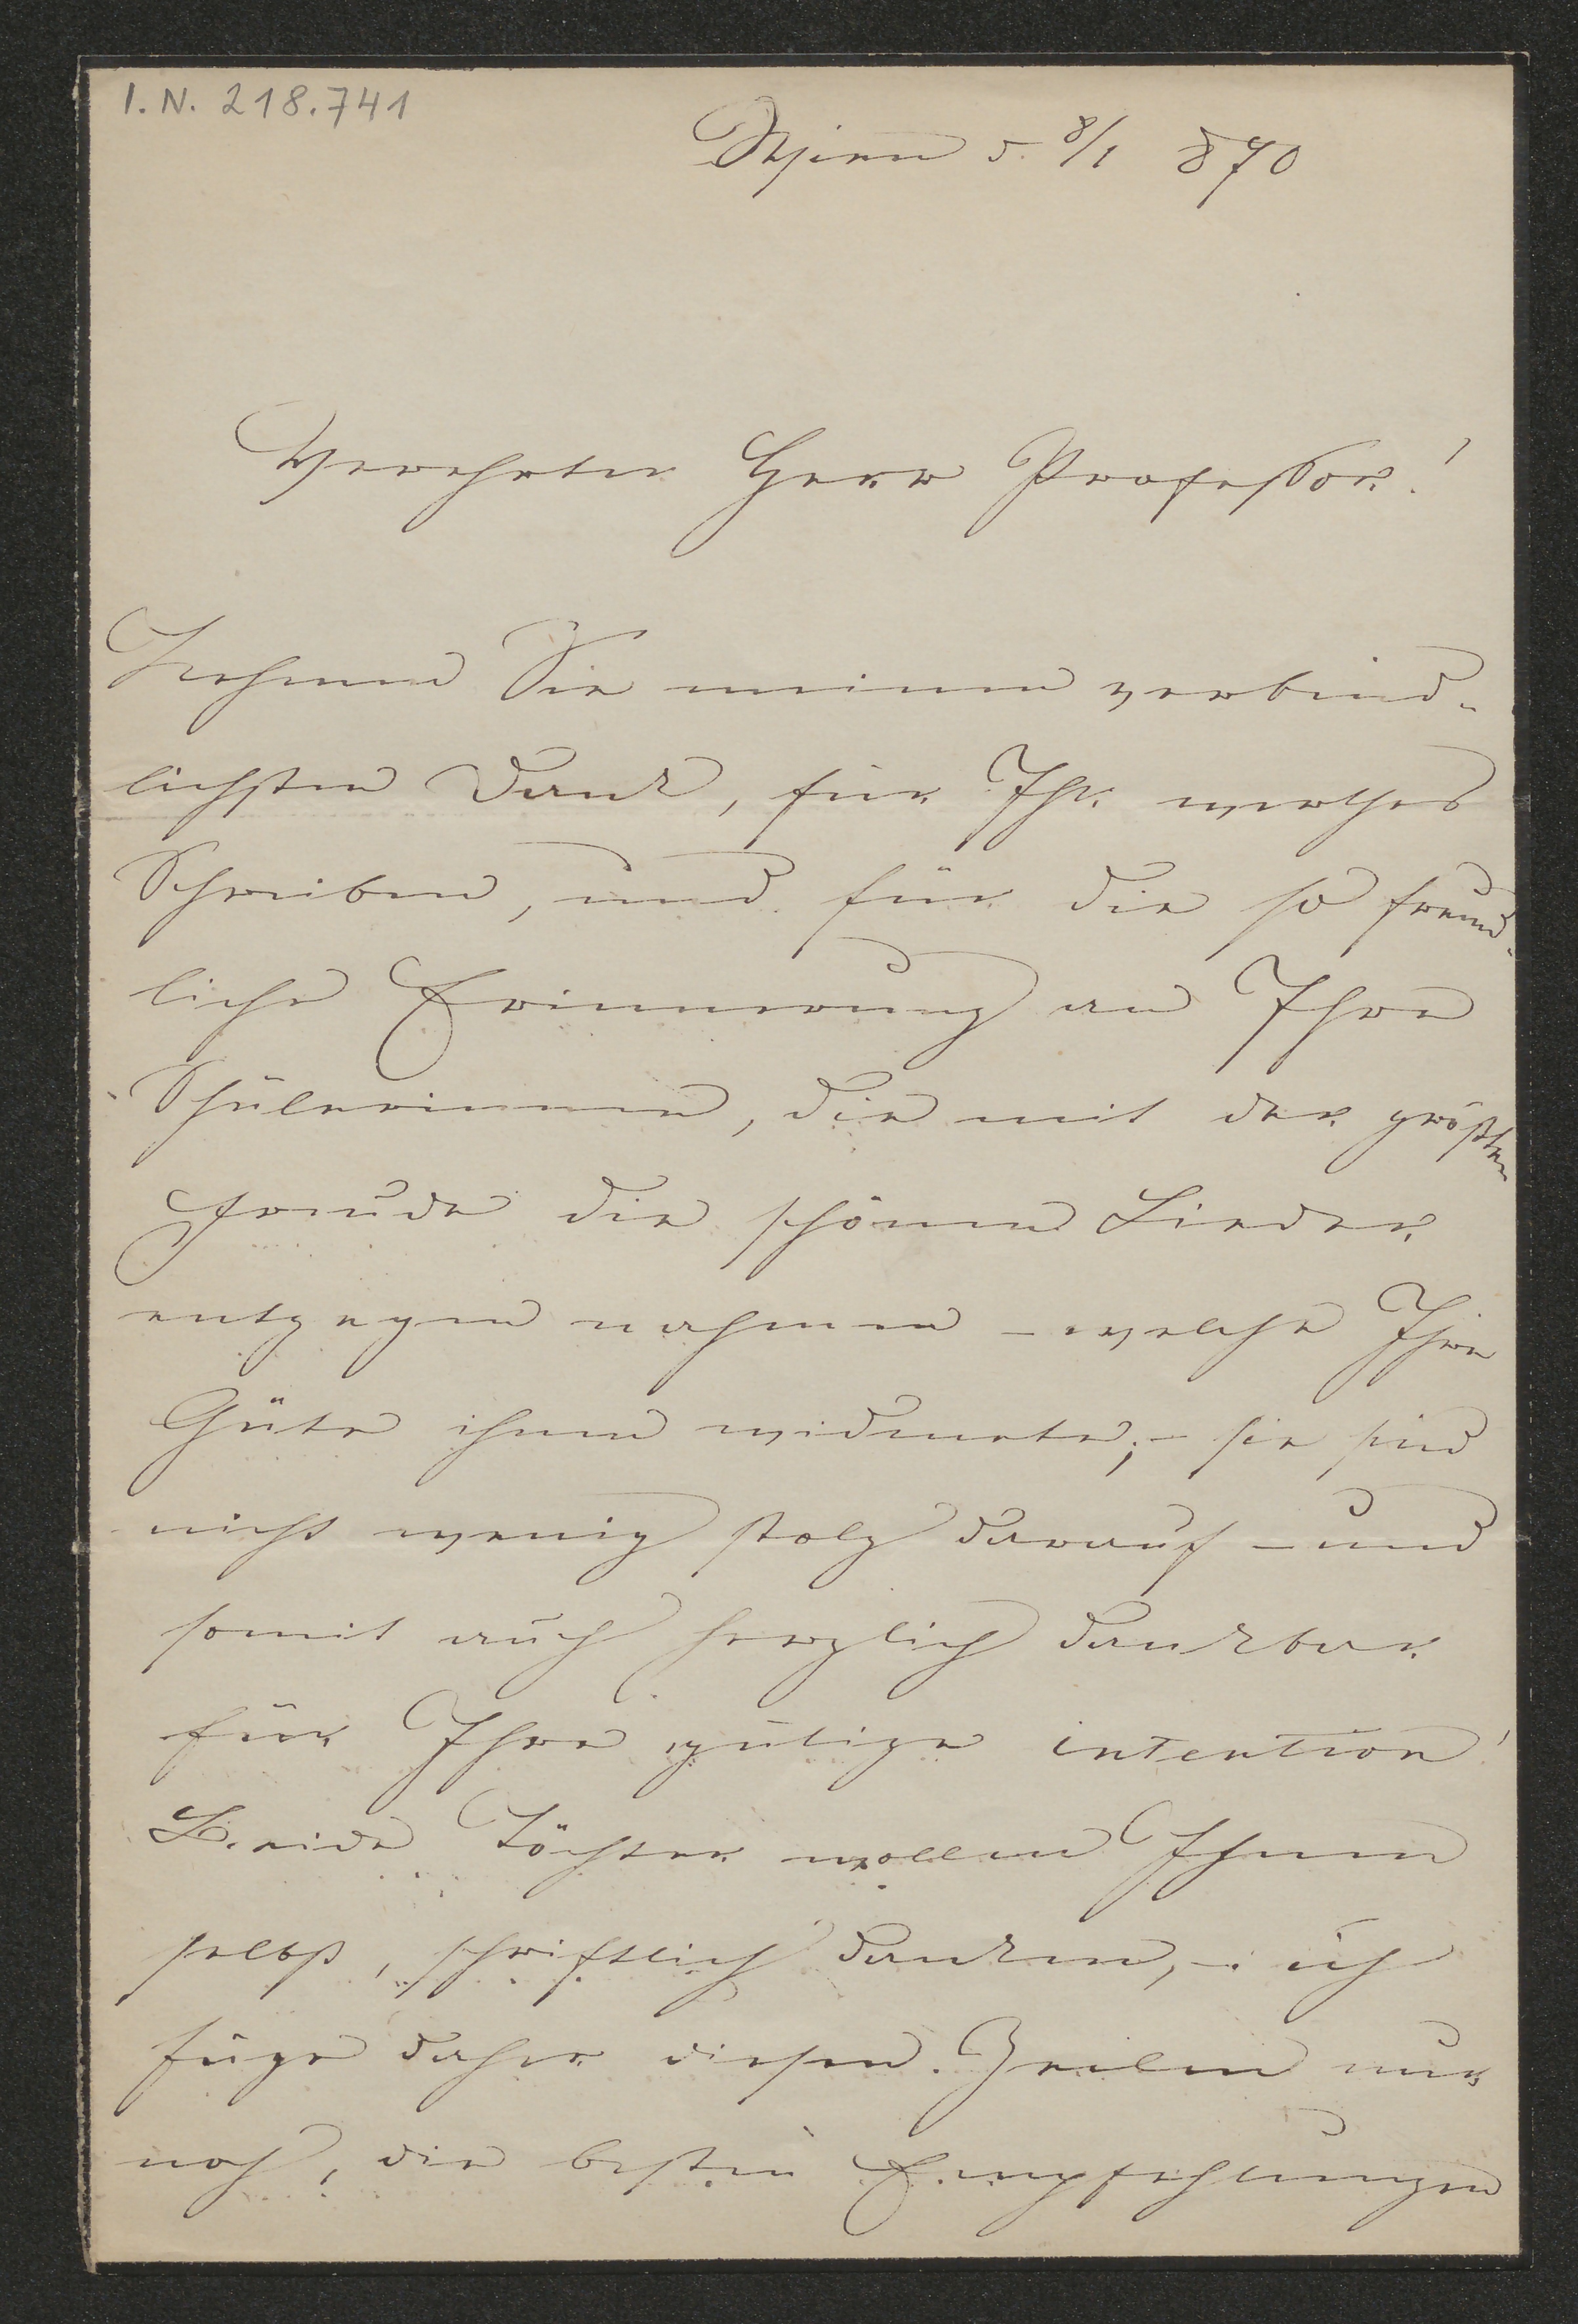 I.N. 218.741
Wien d. 8/1 870
Verehrter Herr Professor!
Nehmen Sie meinen verbind-
lichsten Dank, für Ihr werthes
Schreiben, und für die so freund-
liche Erinnerung an Ihre
Schülerinnen, die mit der größten
Freude die schönen Lieder
entgegen nahmen – welche Ihre
Güte ihnen widmete; – sie sind
nicht wenig stolz darauf – und
somit auch herzlich dankbar
für Ihre gütige intention!
Beide Töchter wollen Ihnen
selbst, schriftlich danken, – ich
füge daher diesen Zeilen nur
noch, die besten Empfehlungen